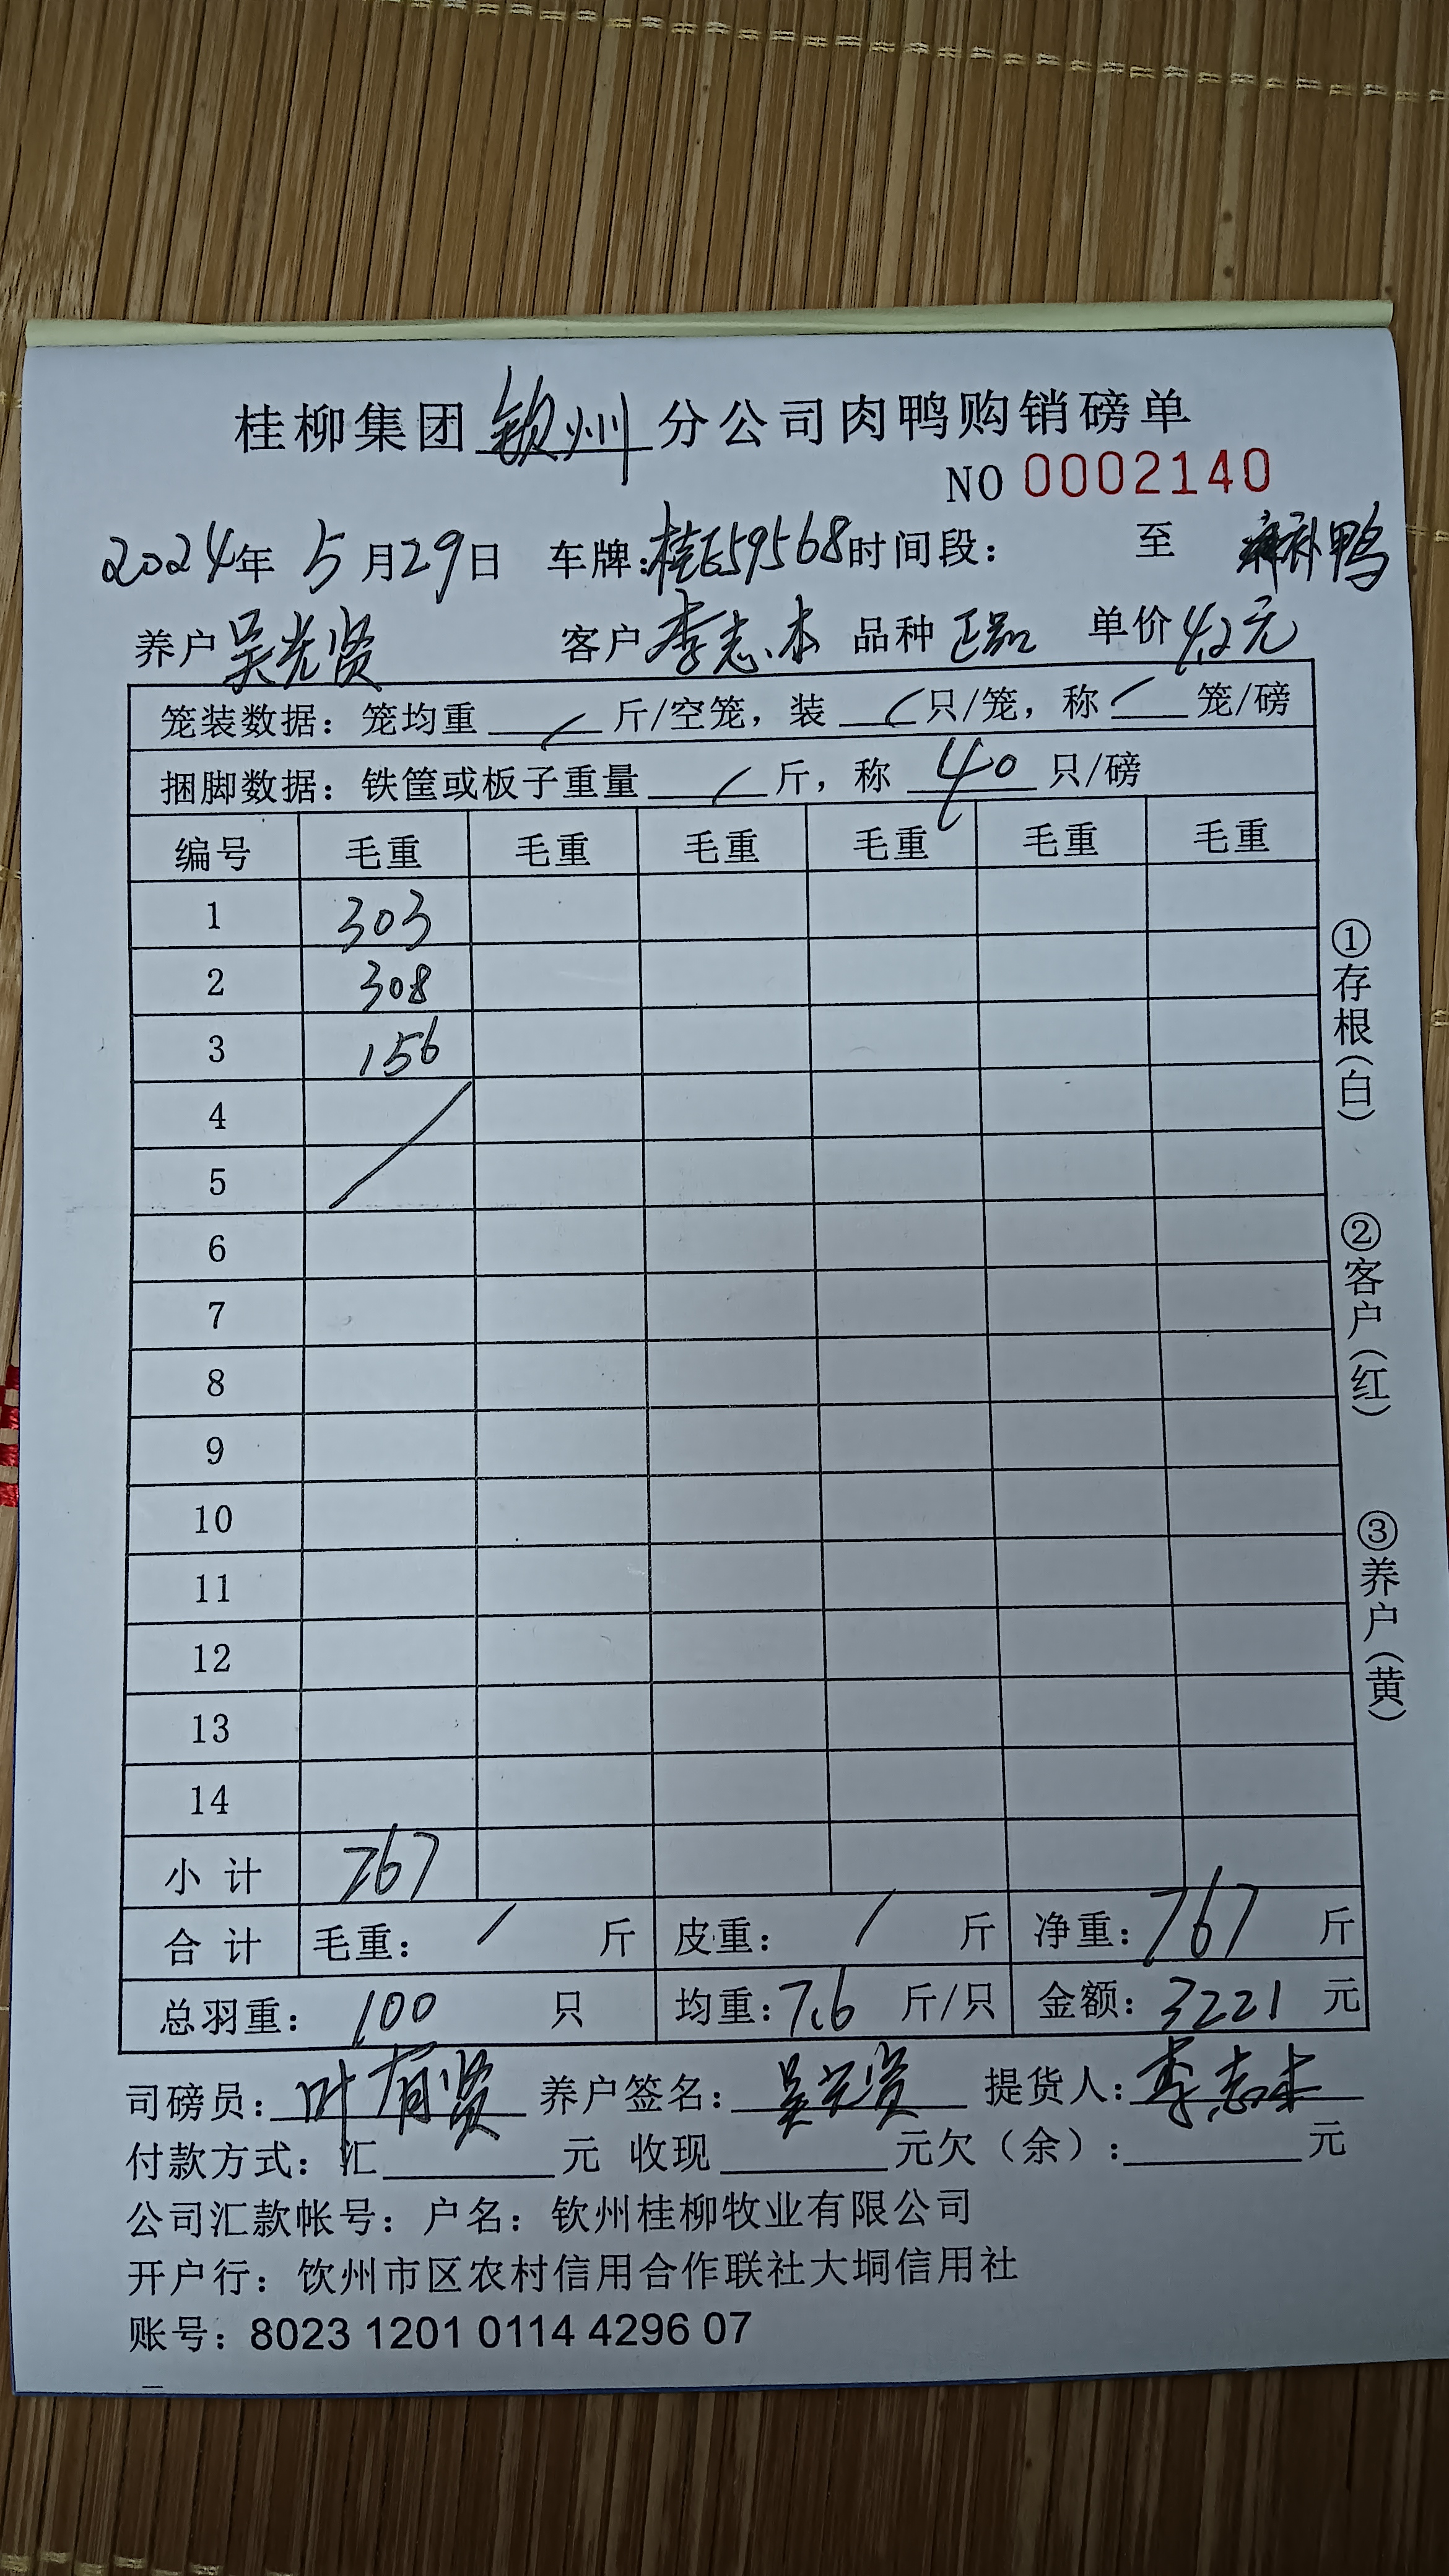 桂柳集团钦州分公司肉鸭购销磅单
NO 0002140
2024年5月29日 车牌:桂E59568时间段: 至 鸭
养户吴光贤 客户李志本 品种正品 单价4.2元
笼装数据：笼均重 / 斤/空笼，装 / 只/笼，称 / 笼/磅
捆脚数据：铁筐或板子重量 / 斤，称 40 只/磅
编号 毛重 毛重 毛重 毛重 毛重 毛重
1 303
2 308
3 156
4
5
6
7
8
9
10
11
12
13
14
小计 767
合计 毛重： / 斤 皮重： / 斤 净重：767 斤
总羽重：100 只 均重：7.6 斤/只 金额：3221 元
司磅员：叶有贤 养户签名：吴光贤 提货人：李志本
付款方式：汇 元 收现 元欠（余）： 元
公司汇款帐号：户名：钦州桂柳牧业有限公司
开户行：饮州市区农村信用合作联社大垌信用社
账号：8023 1201 0114 4296 07
①存根（白）
②客户（红）
③养户（黄）